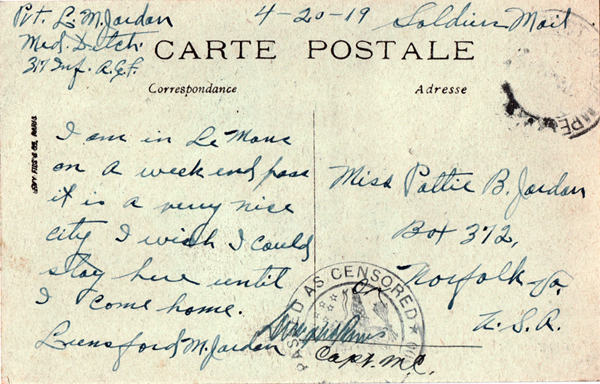 Pvt. L. M. Jordan 4-20-19 Soldiers Mail
Med. Detch.
317 Inf. A.E.F.
CARTE POSTALE
Correspondance
Adresse
I am in Le Mans
on a week end pass
it is a very nice
city I wish I could
stay here until
I come home.
Lunsford M. Jordan
Miss Pattie B. Jordan
Box 372,
Norfolk - Va.
U.S.A.
PASSED AS CENSORED
Capt. M.C.